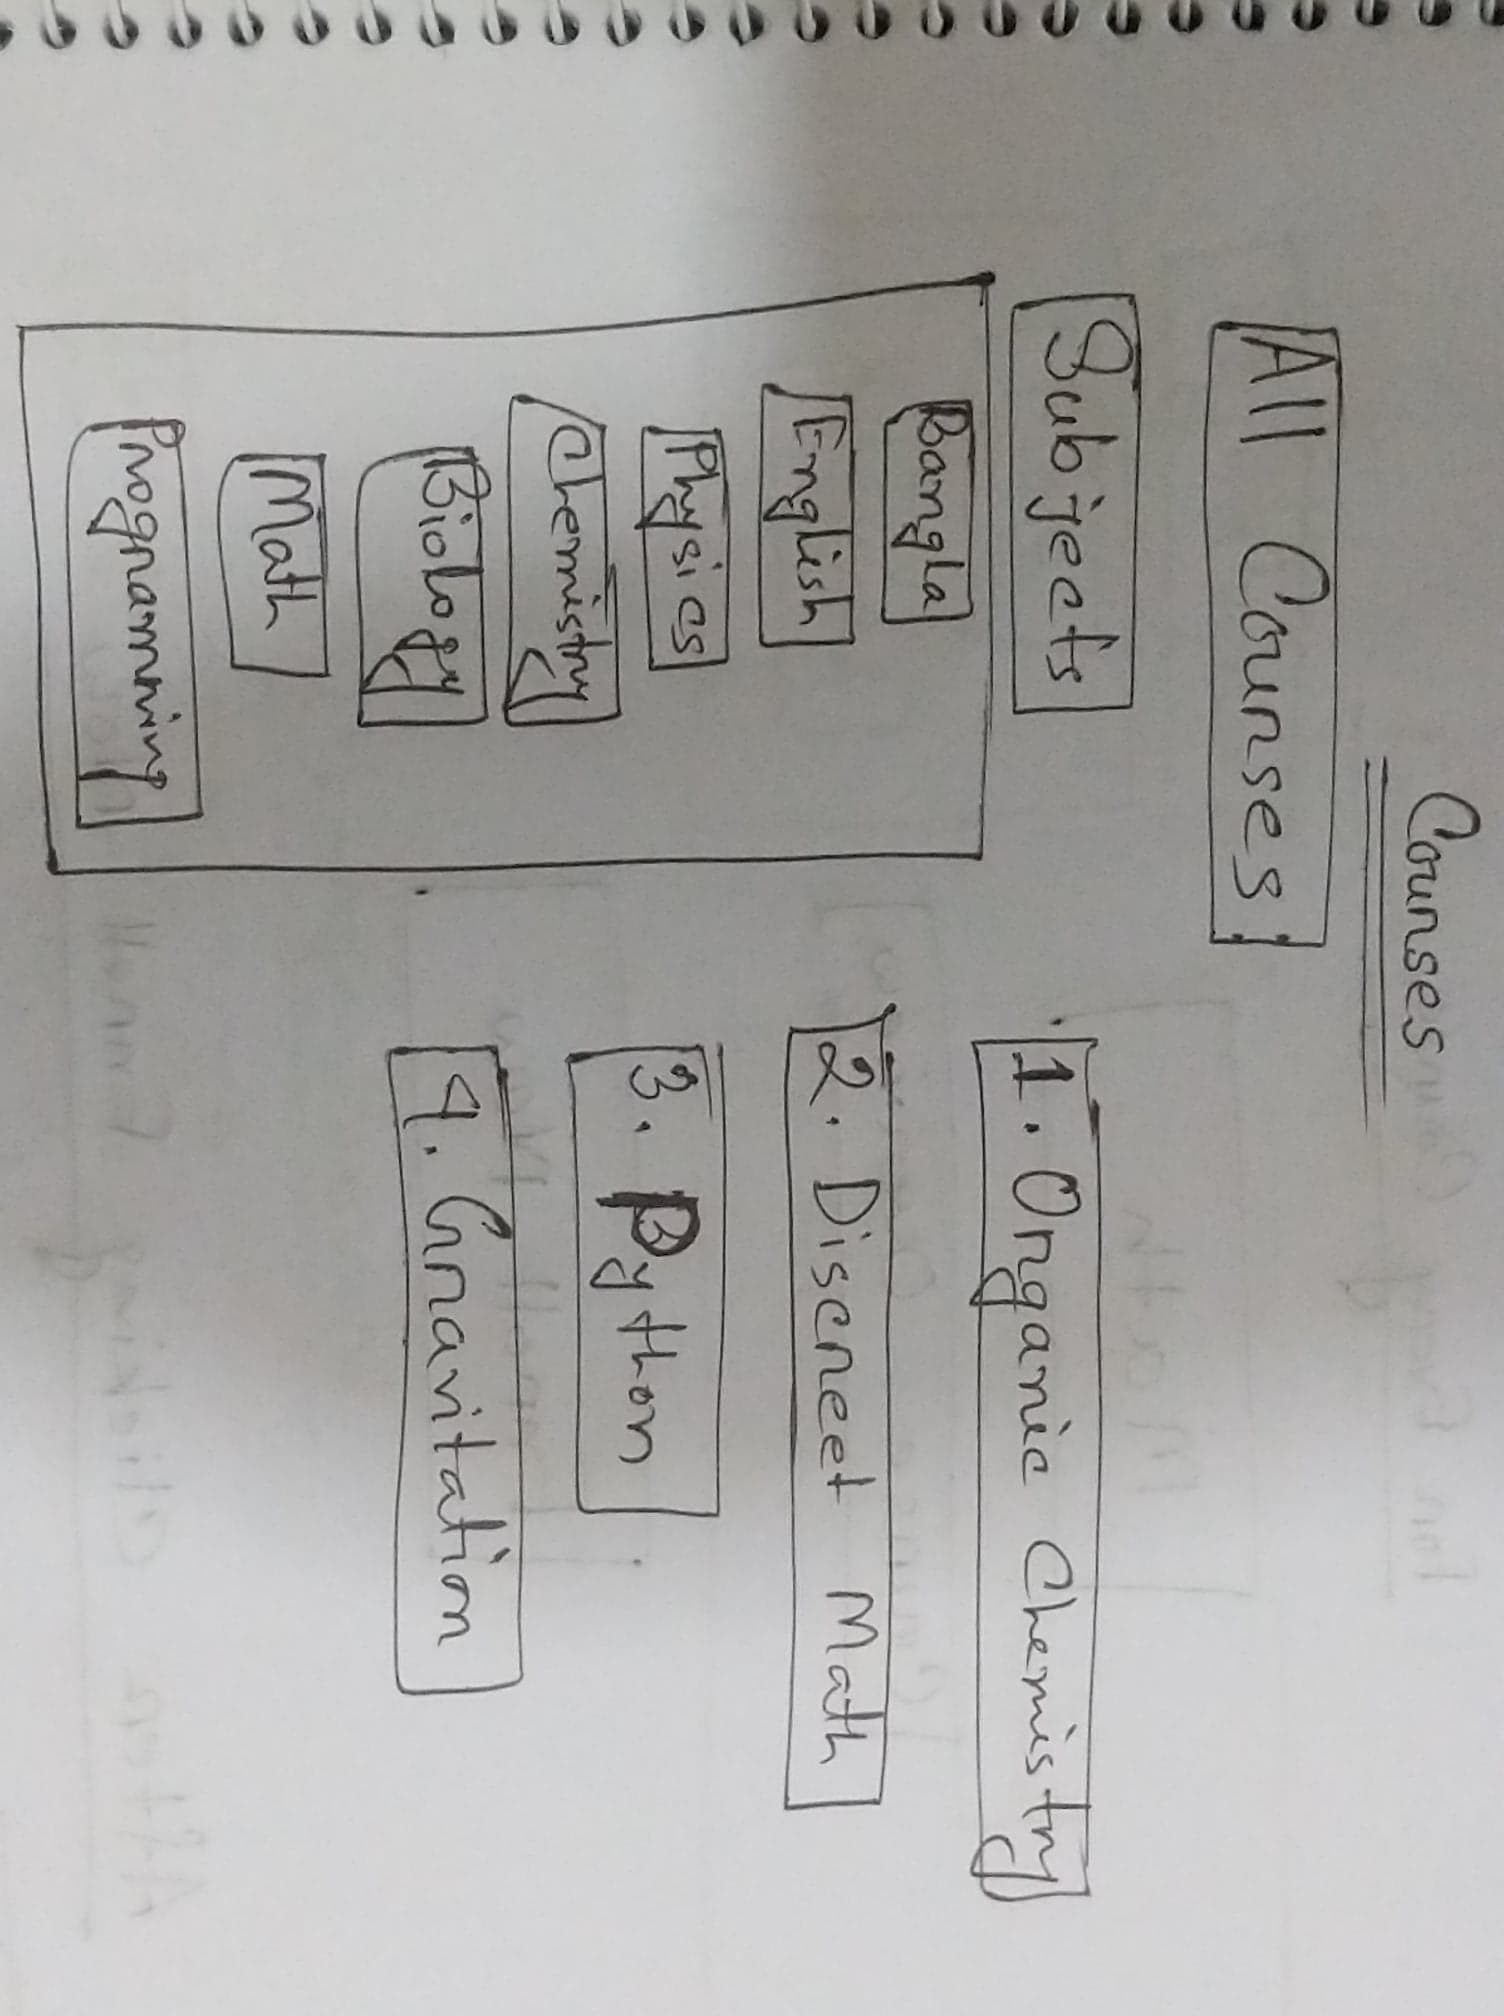 Courses
All Courses
Subjects
Bangla
English
Physics
Chemistry
Biology
Math
Programming
1. Organic Chemistry
2. Discreet Math
3. Python
4. Gravitation